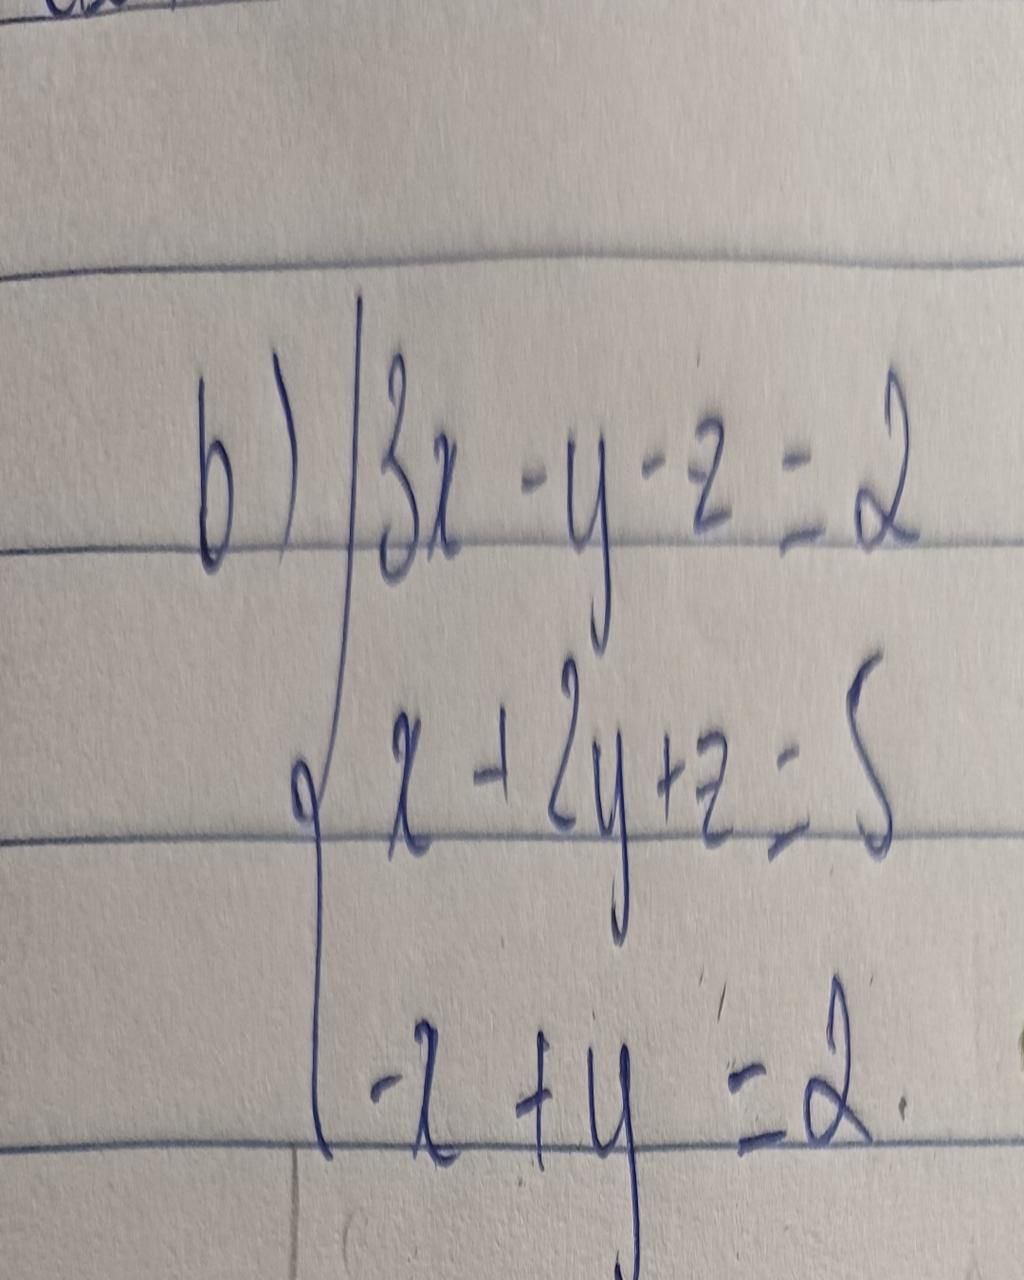 b) 3x - y - z = 2
x + 2y + z = 5
-x + y = 2.